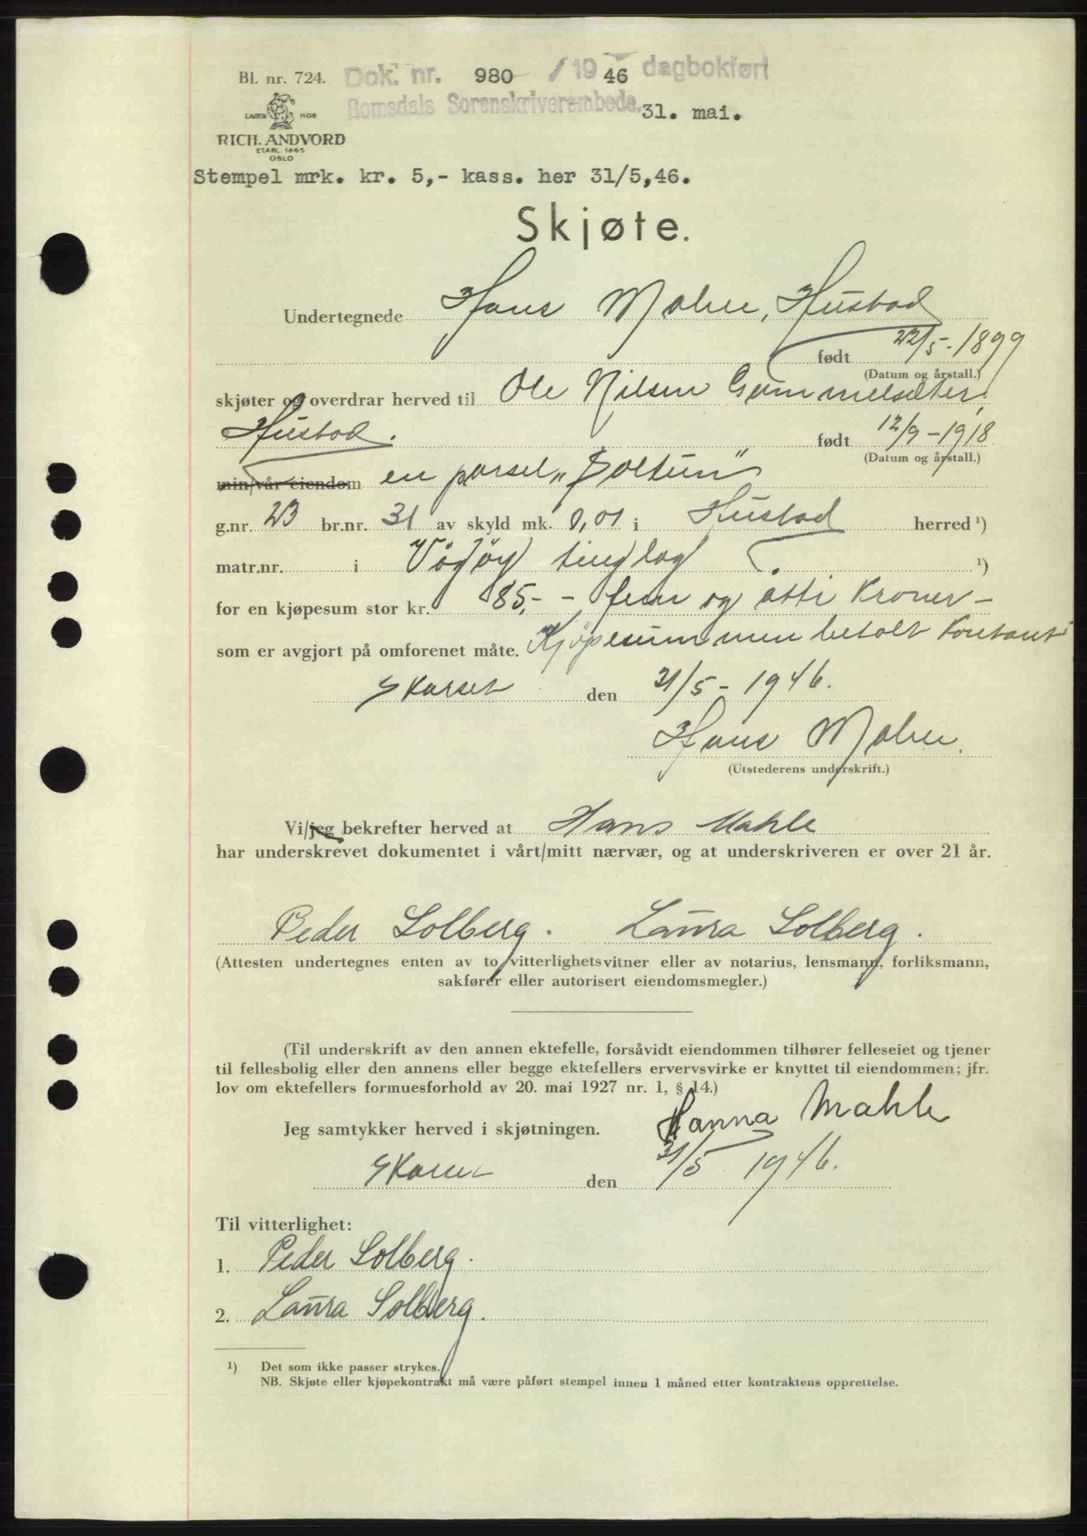 Bl. nr. 724. Dok. nr. 980 / 19 46 dagbokført
Romsdals Sorenskriverembede. 31. mai.
LAGER HOS
RICH. ANDVORD
ETABL. 1865
OSLO
Stempel mrk. kr. 5,- kass. her 31/5,46.
Skjøte.
Undertegnede Hans Mahle, Hustad
født 22/5-1899
(Datum og årstall.)
skjøter og overdrar herved til Ole Nilsen Gammelsæter,
Hustad. født 12/9-1918
(Datum og årstall.)
min/vår eiendom en parsel „Soltun"
g.nr. 23 br.nr. 31 av skyld mk. 0,01 i Hustad herred ¹)
matr.nr. i Vågøy tinglag ¹)
for en kjøpesum stor kr. 85,- - fem og åtti Kroner -
som er avgjort på omforenet måte. Kjøpesummen betalt Kontant
Skarset den 31/5-1946.
Hans Mahle.
(Utstederens underskrift.)
Vi/jeg bekrefter herved at Hans Mahle
har underskrevet dokumentet i vårt/mitt nærvær, og at underskriveren er over 21 år.
Peder Solberg. Laura Solberg.
(Attesten undertegnes enten av to vitterlighetsvitner eller av notarius, lensmann, forliksmann,
sakfører eller autorisert eiendomsmegler.)
(Til underskrift av den annen ektefelle, forsåvidt eiendommen tilhører felleseiet og tjener
til fellesbolig eller den annens eller begge ektefellers ervervsvirke er knyttet til eiendommen; jfr.
lov om ektefellers formuesforhold av 20. mai 1927 nr. 1, § 14.)
Jeg samtykker herved i skjøtningen. Hanna Mahle
Skarset den 31/5 1946.
Til vitterlighet:
1. Peder Solberg.
2. Laura Solberg.
¹) Det som ikke passer strykes.
NB. Skjøte eller kjøpekontrakt må være påført stempel innen 1 måned etter kontraktens opprettelse.